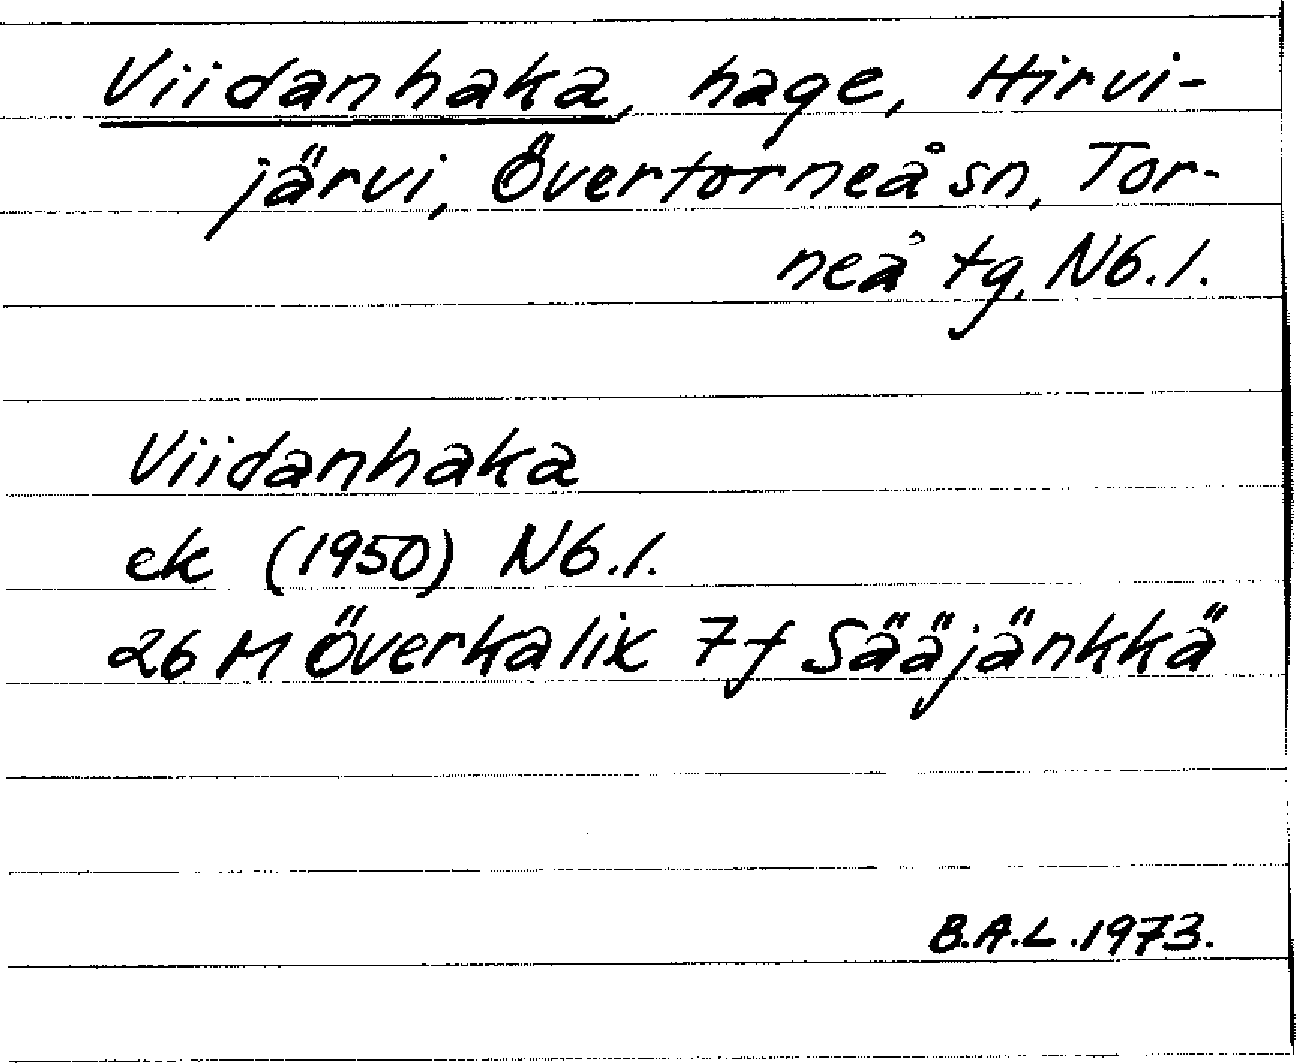 Viidanhaka, hage, Hirvi-
järvi, Övertorneå sn, Tor-
neå tg, Nb.l.
Viidanhaka
ek (1950) Nb.l.
26 M Överkalix 7f Sääjänkkä
B.A.L. 1973.